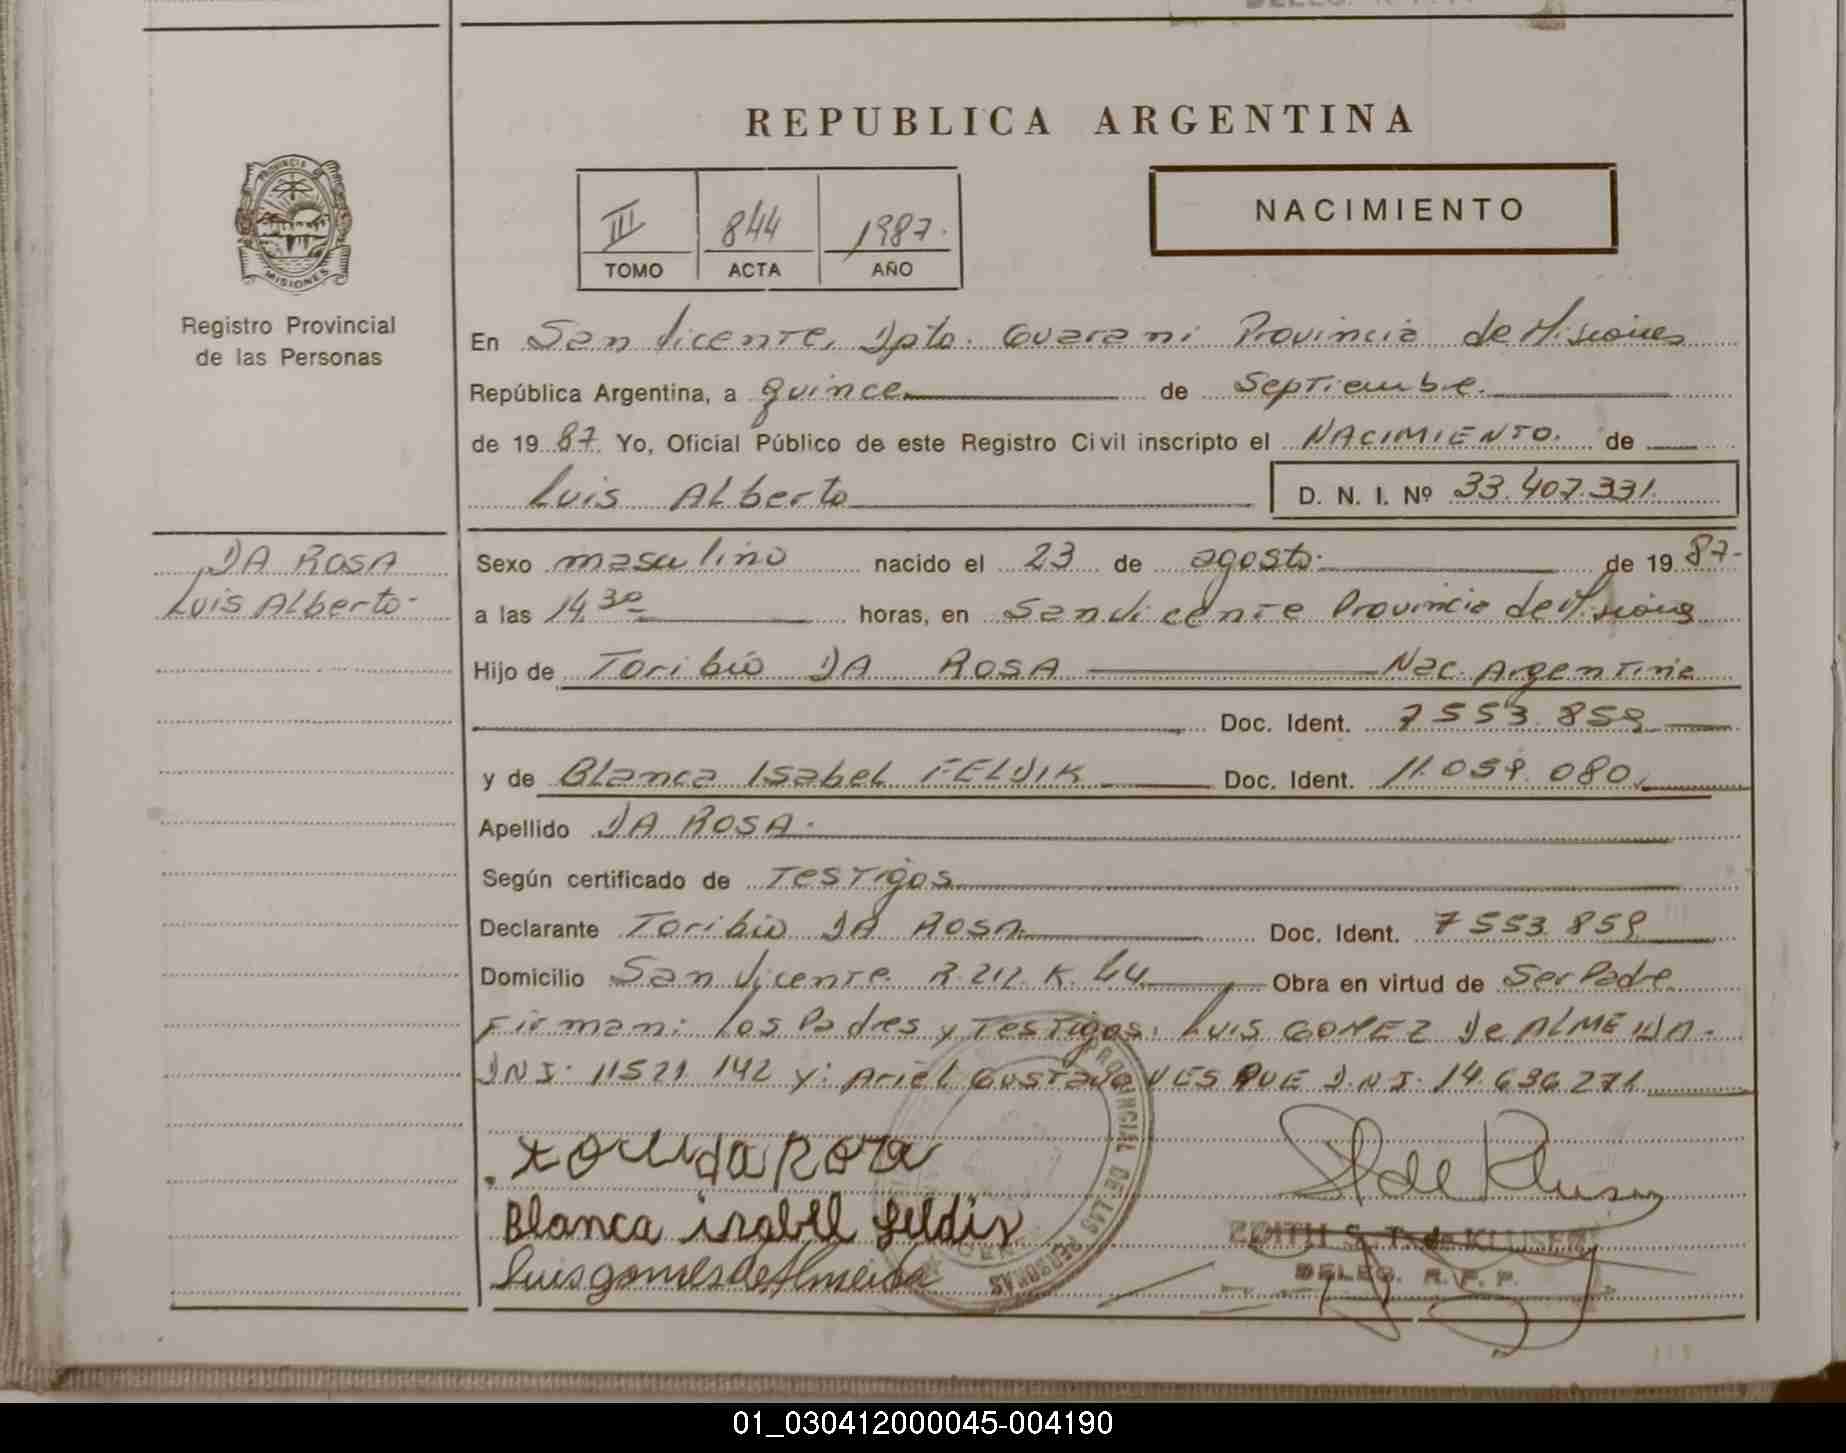 REPUBLICA ARGENTINA
PROVINCIA
MISIONES
Registro Provincial
de las Personas
III 844 1987.
TOMO ACTA AÑO
NACIMIENTO
En San Vicente, Dpto. Guarani Provincia de Misiones
República Argentina, a quince de Septiembre.
de 19 87. Yo, Oficial Público de este Registro Civil inscripto el NACIMIENTO. de
Luis Alberto D. N. I. Nº 33.407.331.
DA ROSA
Luis Alberto-
Sexo masculino nacido el 23 de agosto. de 19 87-
a las 14,30 horas, en San Vicente Provincia de Misiones
Hijo de Toribio DA ROSA Nac. Argentina
Doc. Ident. 7553.859
y de Blanca Isabel FELDIK Doc. Ident. 11.059.080.
Apellido DA ROSA.
Según certificado de Testigos
Declarante Toribio DA ROSA Doc. Ident. 7553.859
Domicilio San Vicente. R.212. K. 44 Obra en virtud de Ser Padre
Firman: Los Padres y Testigos: Luis GOMEZ De ALMEIDA.
DNI. 11521.142 y: Ariel Gustavo VESQUE D.N.I. 14.636.271
PROVINCIAL DE LAS PERSONAS
da Rosa
Blanca isabel feldix
Luis gomes de Almeida
EDITH S. T. de KLUSER
DELEG. R. P. P.
01_030412000045-004190